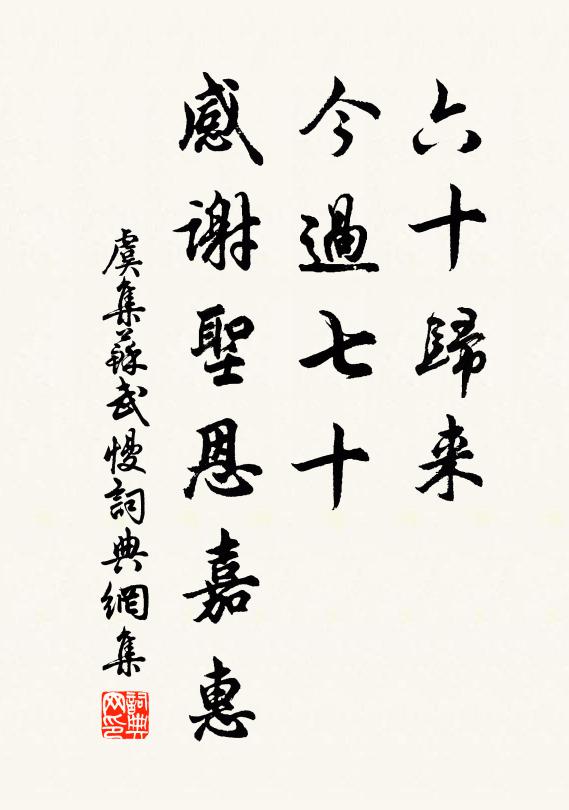 六十歸来
今過七十
感謝聖恩嘉惠
虞集蘇武慢詞典網集
詞典
网印